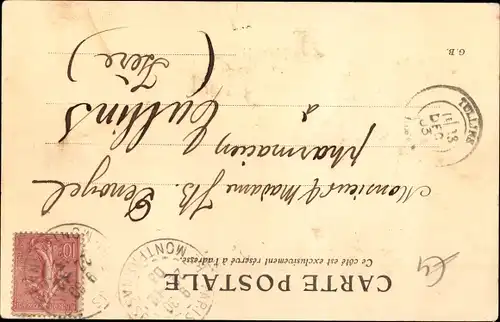 CARTE POSTALE
Ce côté est exclusivement réservé à l'adresse.
Monsieur & Madame J.B. Denogel
pharmacien
à
Tullins
(Isère)
G.B.
TULLINS
DEC
03
10